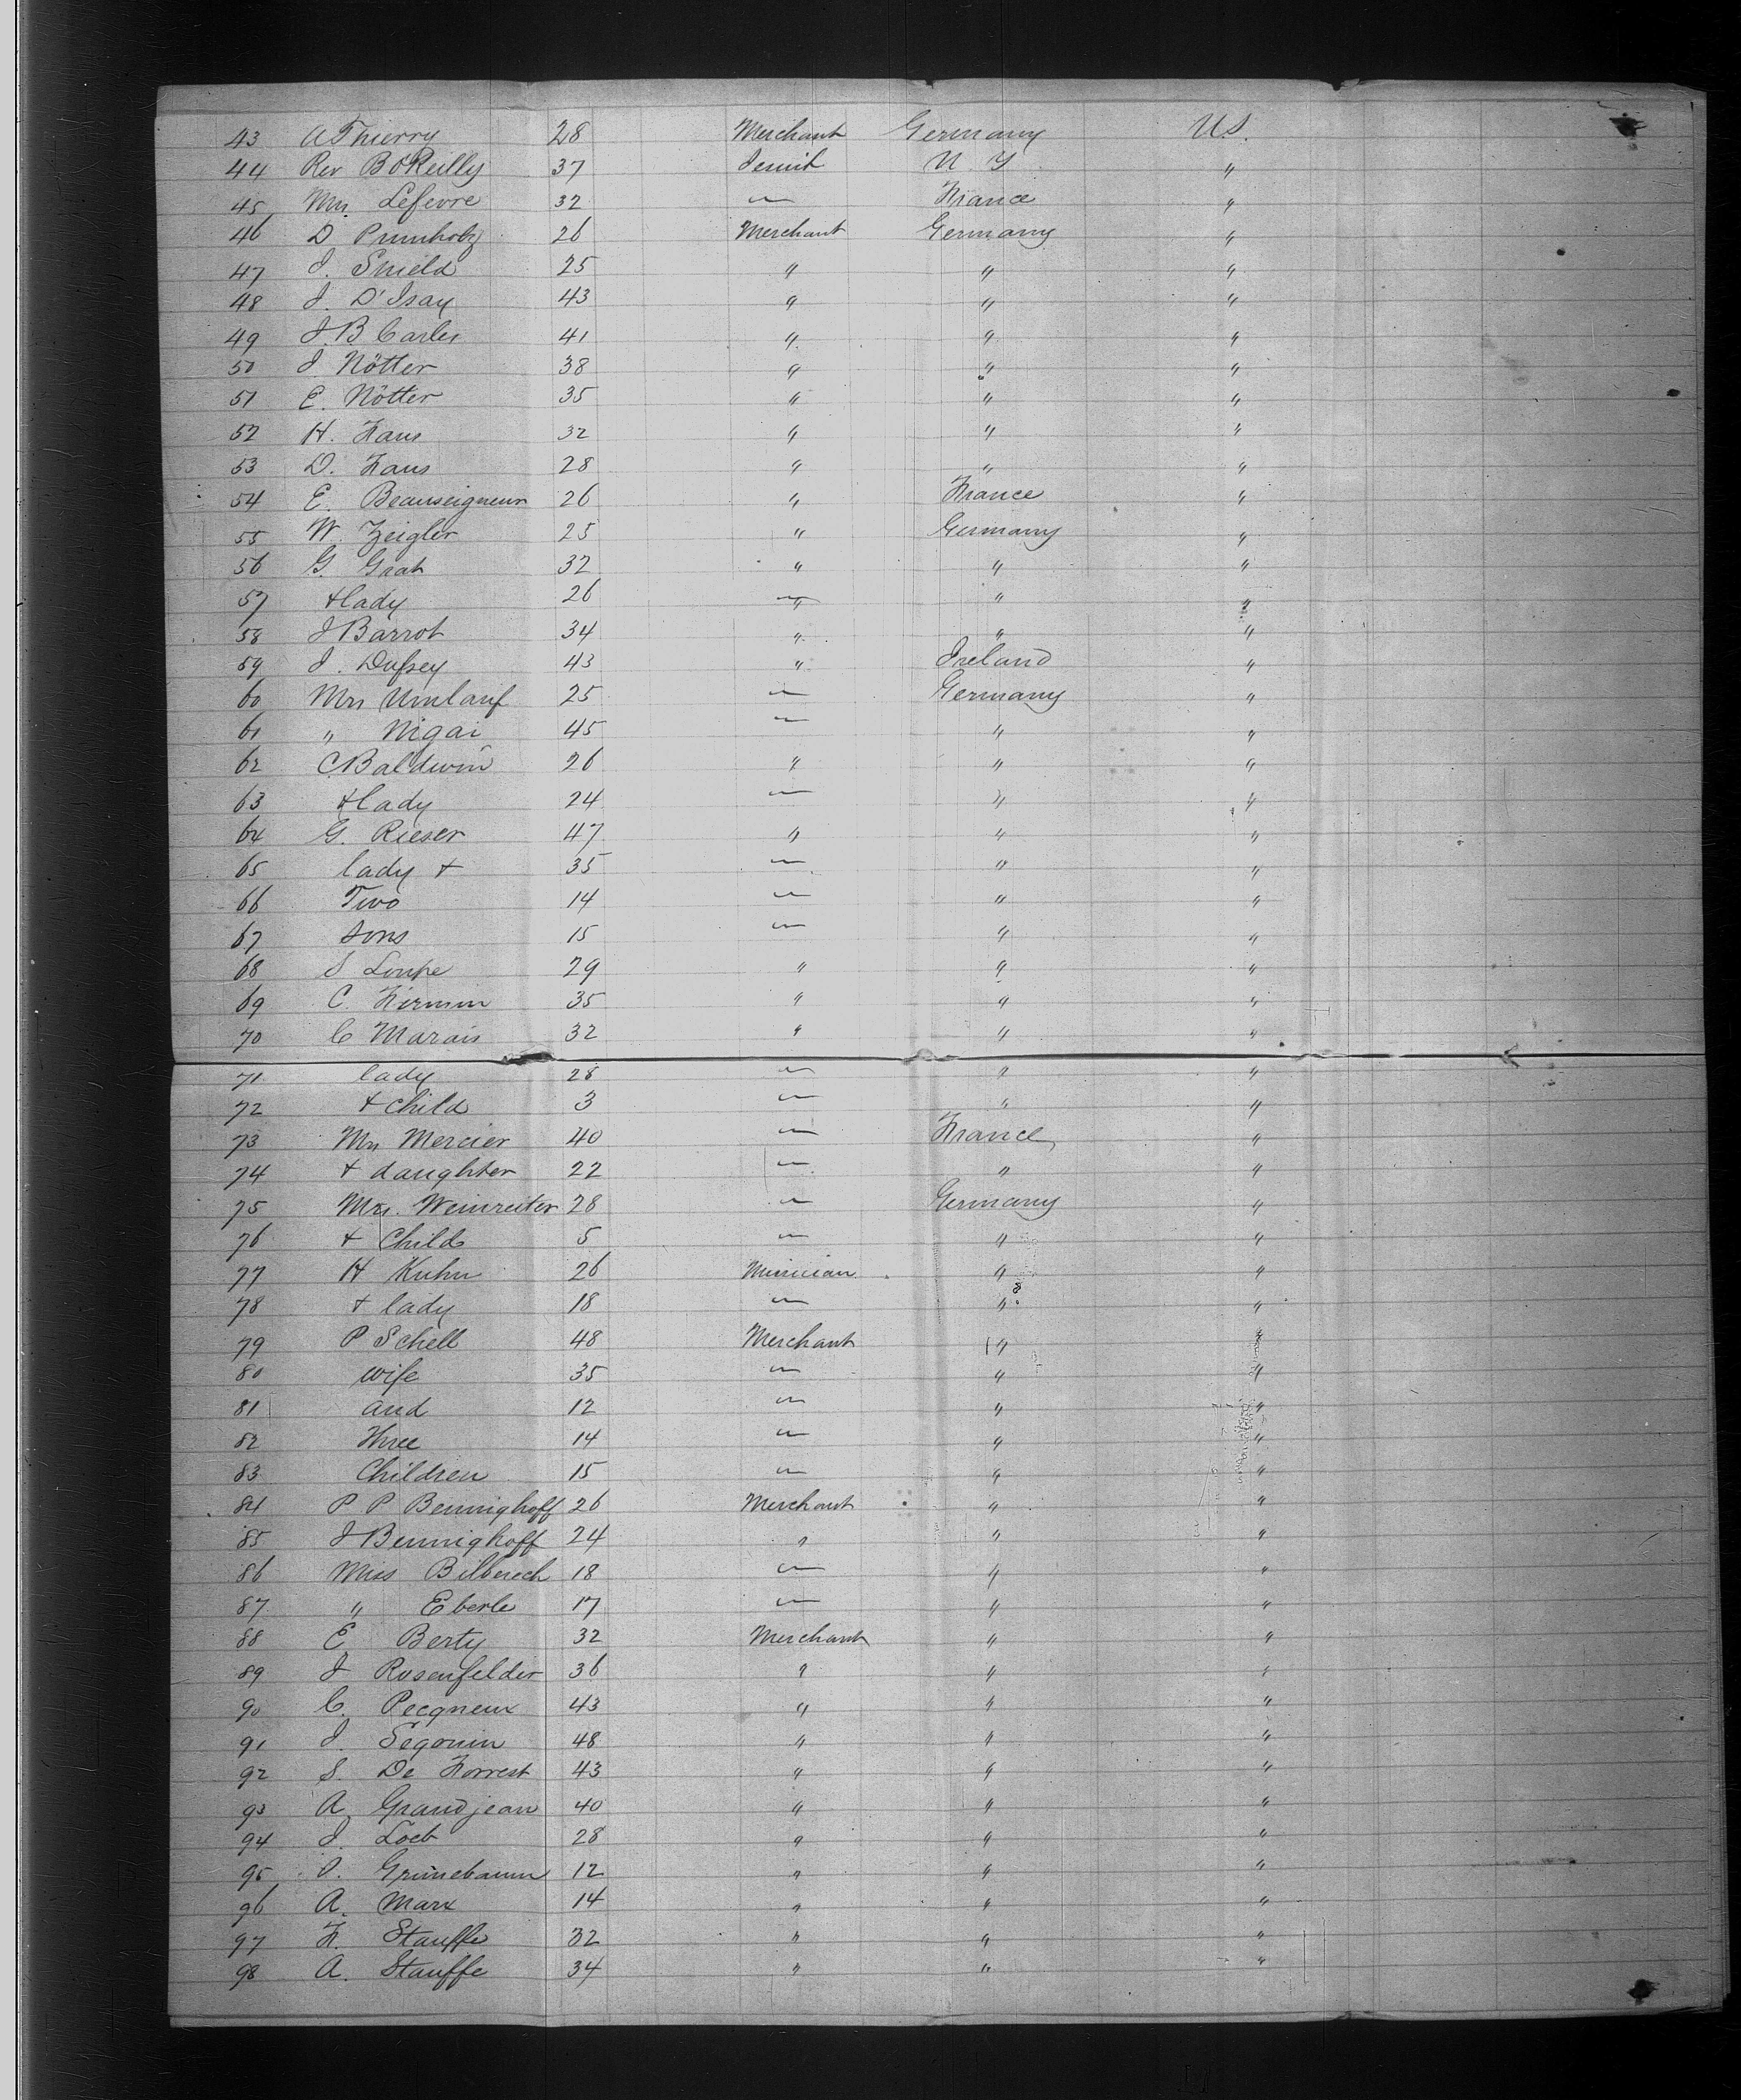 43 A Thierry 28 Merchant Germany U S.
44 Rev B O'Reilly 37 Jesuit N Y "
45 Mrs Lefevre 32 — France "
46 D 26 Merchant Germany "
47 J. 25 " " "
48 J. D'Isay 43 " " "
49 J. B Carles 41 " " "
50 J Nötter 38 " " "
51 E. Nötter 35 " " "
52 H. Haus 32 " " "
53 D. Haus 28 " " "
54 E. Beauseigneur 26 " France "
55 W. Zeigler 25 " Germany "
56 G. 32 " " "
57 + lady 26 — " "
58 J Barrot 34 " " "
59 J. 43 " Ireland "
60 Mrs Umlauf 25 — Germany "
61 " Nigai 45 — " "
62 C Baldwin 26 " " "
63 + lady 24 — " "
64 G. Rieser 47 " " "
65 lady + 35 — " "
66 Two 14 — " "
67 Sons 15 — " "
68 S Loupe 29 " " "
69 C. Firmin 35 " " "
70 C Marais 32 " " "
71 lady 28 — " "
72 + child 3 — " "
73 Mrs Mercier 40 — France "
74 + daughter 22 — " "
75 Mrs. Weinreiter 28 — Germany "
76 + Child 5 — " "
77 H Kuhn 26 Musician " "
78 + lady 18 — " "
79 P Schell 48 Merchant " "
80 wife 35 — " "
81 and 12 — " "
82 three 14 — " "
83 Children 15 — " "
84 P P Benninghoff 26 Merchant " "
85 J Benninghoff 24 " " "
86 Miss 18 — " "
87 " Eberle 17 — " "
88 E Berty 32 Merchant " "
89 J Rosenfelder 36 " " "
90 C. Pecqneux 43 " " "
91 J. Segouin 48 " " "
92 S. De Forrest 43 " " "
93 A. Grandjean 40 " " "
94 J. Loeb 28 " " "
95 J. Grünebaum 12 " " "
96 A. Marx 14 " " "
97 F. Stauffe 32 " " "
98 A. Stauffe 34 " " "